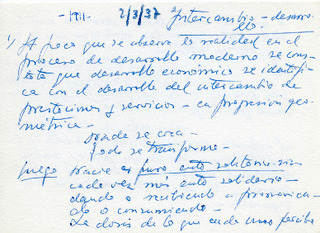 -1911- 2/3/37 Intercambio - desarro
llo.
1/ A poco que se observe la realidad en el
proceso de desarrollo moderno se cons
tata que desarrollo económico se identifi
ca con el desarrollo del intercambio de
prestaciones y servicios - en progresión geo
métrica -
nada se crea -
todo se transforma -
luego nadie es puro ente solitario sino
cada vez más ente solidario -
dando o recibiendo
o consumiendo -
La dosis de lo que cada uno perciba